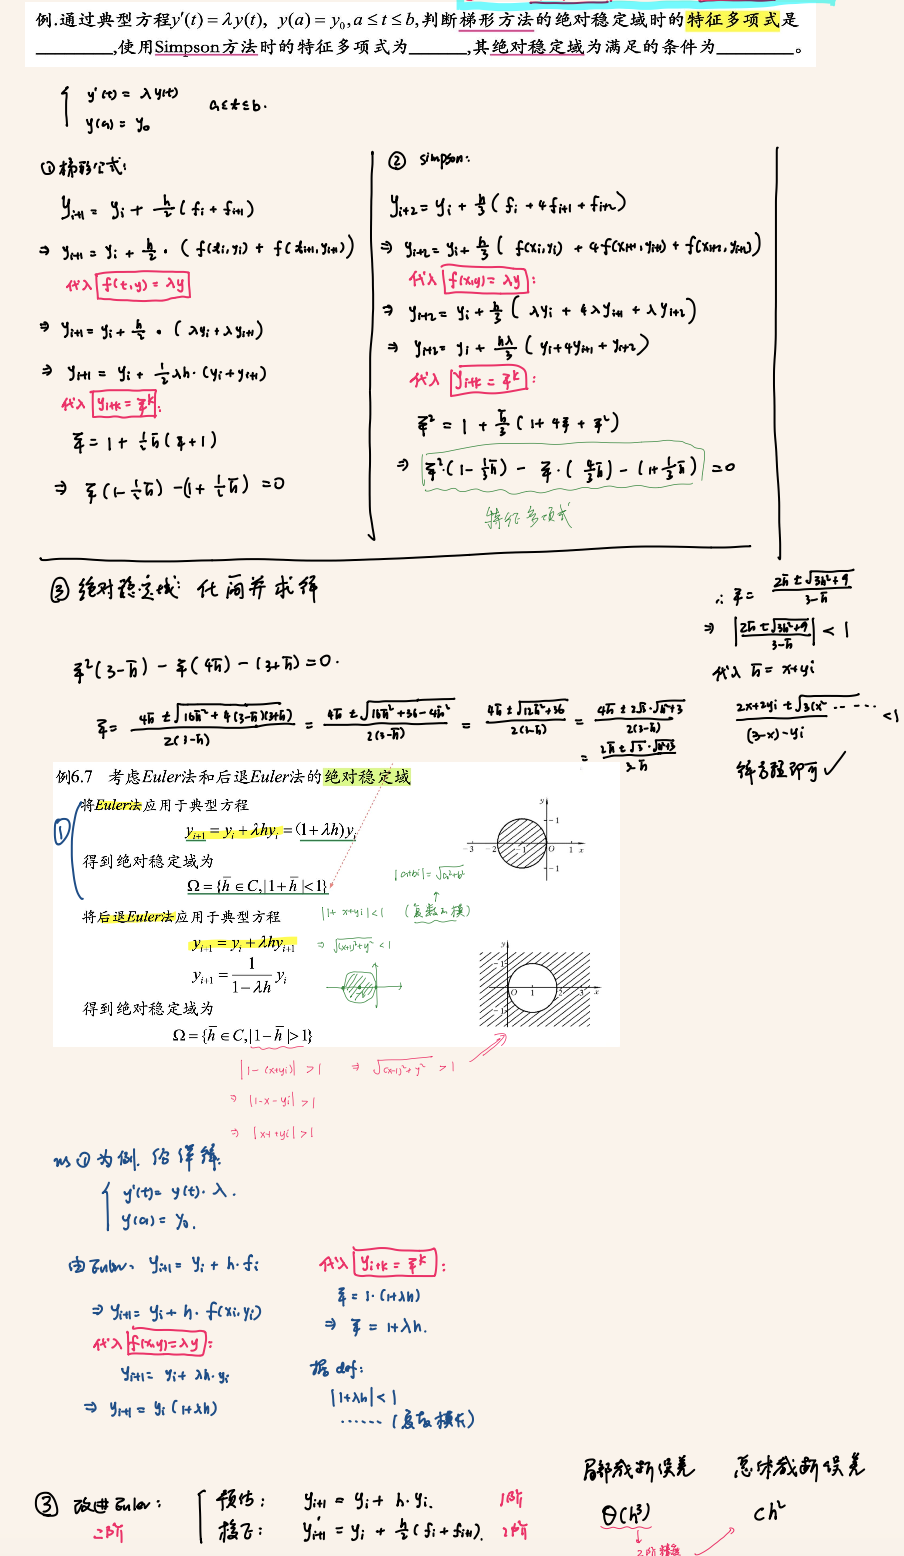 例.通过典型方程y′(t) = λy(t), y(a) = y₀, a ≤ t ≤ b,判断梯形方法的绝对稳定域时的特征多项式是
________,使用Simpson方法时的特征多项式为______,其绝对稳定域为满足的条件为________。
{ y′(t) = λy(t)
y(a) = y₀
a≤t≤b.
① 梯形公式:
y_{i+1} = y_i + h/2 (f_i + f_{i+1})
⇒ y_{i+1} = y_i + h/2 · (f(t_i,y_i) + f(t_{i+1},y_{i+1}))
代入 f(t,y) = λy
⇒ y_{i+1} = y_i + h/2 · (λy_i + λy_{i+1})
⇒ y_{i+1} = y_i + 1/2 λh · (y_i + y_{i+1})
代入 y_{i+k} = ξ^k :
ξ = 1 + 1/2 h̄ (ξ+1)
⇒ ξ(1-1/2 h̄) - (1+1/2 h̄) = 0
② simpson:
y_{i+2} = y_i + h/3 (f_i + 4f_{i+1} + f_{i+2})
⇒ y_{i+2} = y_i + h/3 (f(x_i,y_i) + 4f(x_{i+1},y_{i+1}) + f(x_{i+2},y_{i+2}))
代入 f(x,y) = λy :
⇒ y_{i+2} = y_i + h/3 (λy_i + 4λy_{i+1} + λy_{i+2})
⇒ y_{i+2} = y_i + hλ/3 (y_i + 4y_{i+1} + y_{i+2})
代入 y_{i+k} = ξ^k :
ξ² = 1 + h̄/3 (1 + 4ξ + ξ²)
⇒ ξ²·(1-1/3 h̄) - ξ·(4/3 h̄) - (1+1/3 h̄) = 0
特征多项式
③ 绝对稳定域: 化简并求解
ξ²(3-h̄) - ξ(4h̄) - (3+h̄) = 0.
ξ = (4h̄ ± √(16h̄² + 4(3-h̄)(3+h̄))) / 2(3-h̄) = (4h̄ ± √(16h̄² + 36 - 4h̄²)) / 2(3-h̄) = (4h̄ ± √(12h̄² + 36)) / 2(3-h̄) = (4h̄ ± 2√3·√(h̄²+3)) / 2(3-h̄)
= (2h̄ ± √3·√(h̄²+3)) / 3-h̄
∴ ξ = (2h̄ ± √(3h̄²+9)) / 3-h̄
⇒ |(2h̄ ± √(3h̄²+9)) / 3-h̄| < 1
代入 h̄ = x+yi
(2x+2yi ± √(3(x² ······ / (3-x)-yi < 1
解方程即可 ✓
例6.7 考虑Euler法和后退Euler法的绝对稳定域
①
将Euler法应用于典型方程
y_{i+1} = y_i + λhy_i = (1+λh)y_i
得到绝对稳定域为
Ω = {h̄ ∈ C, |1+h̄| < 1}
将后退Euler法应用于典型方程
y_{i+1} = y_i + λhy_{i+1}
y_{i+1} = 1/(1-λh) y_i
得到绝对稳定域为
Ω = {h̄ ∈ C, |1-h̄| > 1}
|a+bi| = √(a²+b²)
↑
(复数の模)
|1+x+yi| < 1
⇒ √((x+1)²+y²) < 1
y
1
-3 -2 -1 O 1 x
-1
y
1
O 1 2 3 x
-1
|1-(x+yi)| > 1 ⇒ √((x-1)²+y²) > 1
⇒ |1-x-yi| > 1
⇒ |x-1+yi| > 1
以①为例. 给详解:
{ y′(t) = y(t)·λ.
y(a) = y₀.
由Euler、y_{i+1} = y_i + h·f_i
⇒ y_{i+1} = y_i + h·f(x_i,y_i)
代入 f(x,y)=λy :
y_{i+1} = y_i + λh·y_i
⇒ y_{i+1} = y_i(1+λh)
代入 y_{i+k} = ξ^k :
ξ = 1·(1+λh)
⇒ ξ = 1+λh.
据def:
|1+λh| < 1
······ (复数模长)
局部截断误差 总体截断误差
③ 改进Euler: { 预估: y_{i+1} = y_i + h·y_i. 1阶 Θ(h³) ch²
二阶 校正: y_{i+1} = y_i + h/2 (f_i + f_{i+1}). 2阶
2阶精度